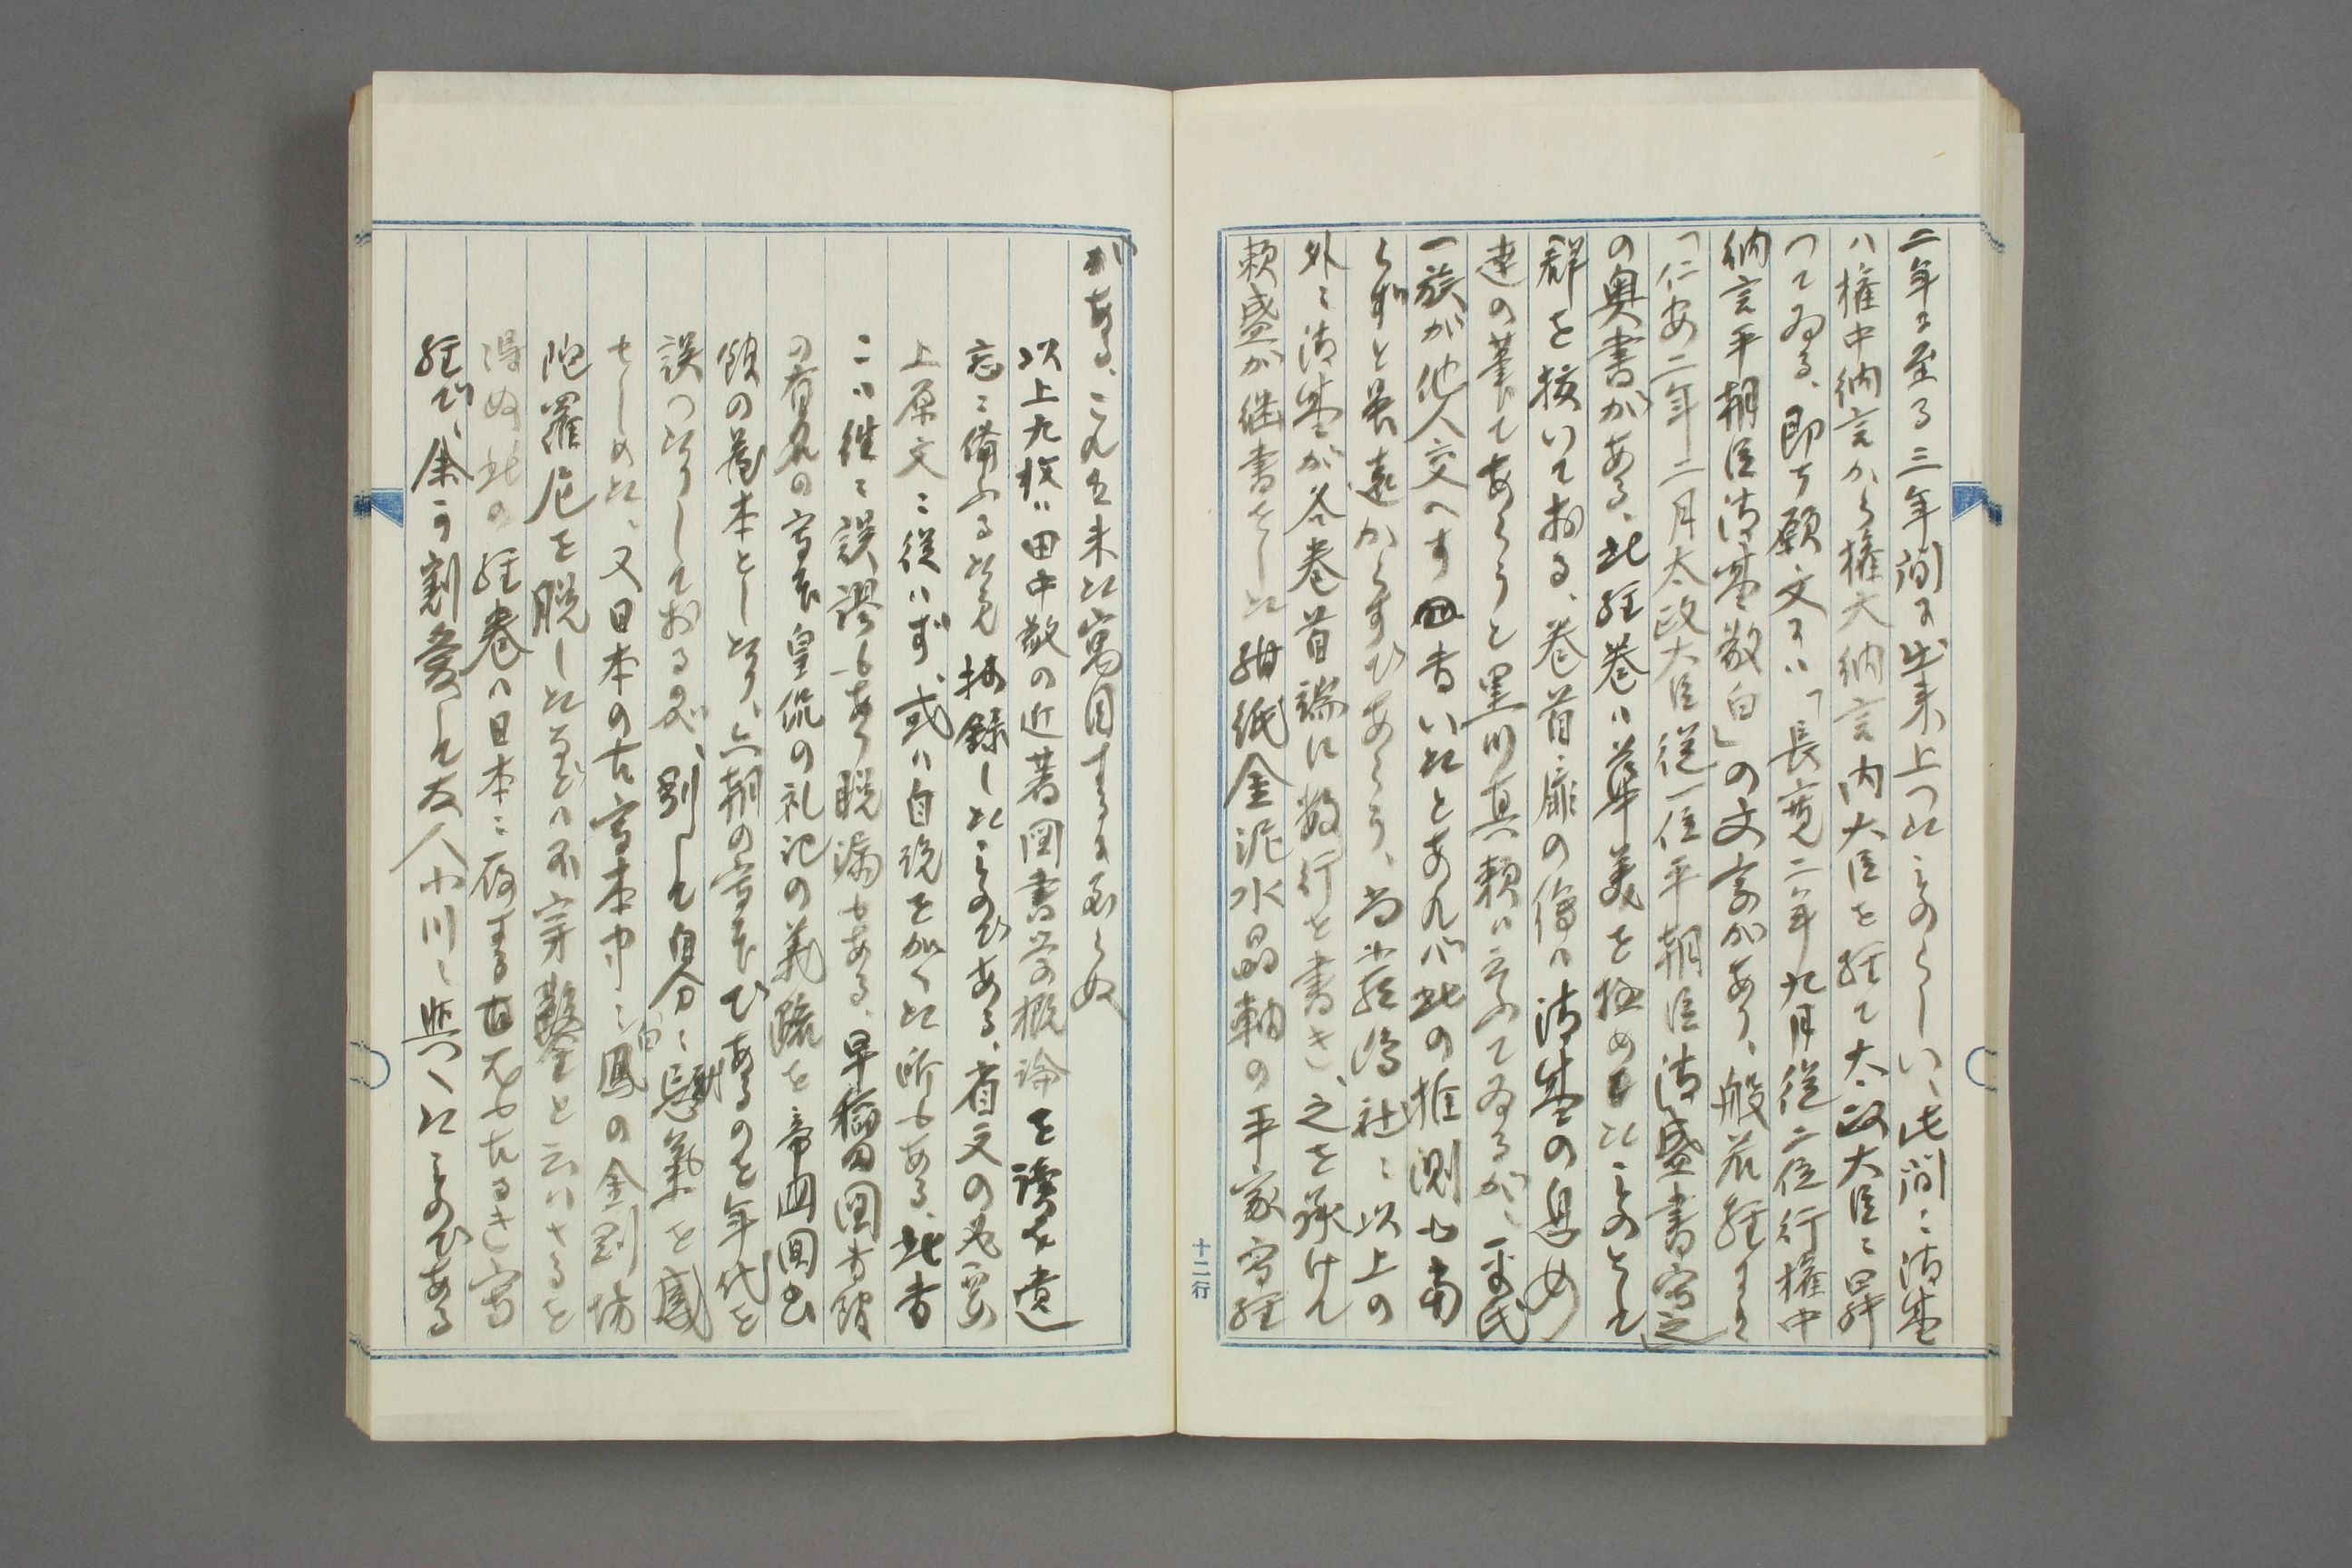 二年に至る三年間に出来上つたものらしい、此間に清盛
ハ権中納言から権大納言内大臣を経て太政大臣に昇
つてゐる、即ち願文にハ「長寛二年九月従二位行権中
納言平朝臣清盛敬白」の文言があり、般若経にも
「仁安二年二月太政大臣従一位平朝臣清盛書写之」
の奥書がある、此経巻ハ華美を極めたものとして
群を抜いておる、巻首扉の
達の筆であらうと黒川真頼ハ云ふてゐるが、平氏
一族が他人交へす書いたとあれバ此の推測も当
らずと雖遠からずであらう、尚厳島社に以上の
外に清盛が各巻首端に数行を書き、之を承けて
頼盛が継書せし紺紙金泥水晶軸の平家写経
がある、これも未た寓目するに至らぬ
以上九枚ハ田中敬の近著図書学概論を読み遺
忘に備ふる為め抄録したものである、省文の必要
上原文に従ハず、或ハ自説を加へた所もある、此書
にハ往々誤謬もあり脱漏もある、早稲田図書館
の有名の写本皇侃の礼記の義疏を帝国図書
館の蔵本としたり、六朝の写本であるのを年代を
誤つたりしておるが、別して自分に慰藉を感
せしめた、又日本の古写本中に白鳳の金剛場
陀羅尼を脱したなどハ不穿鑿と云ハさるを
得ぬ此の経巻ハ日本に存する最も古るき写
経で、余が割愛して友人小川に与へたものである
十二行